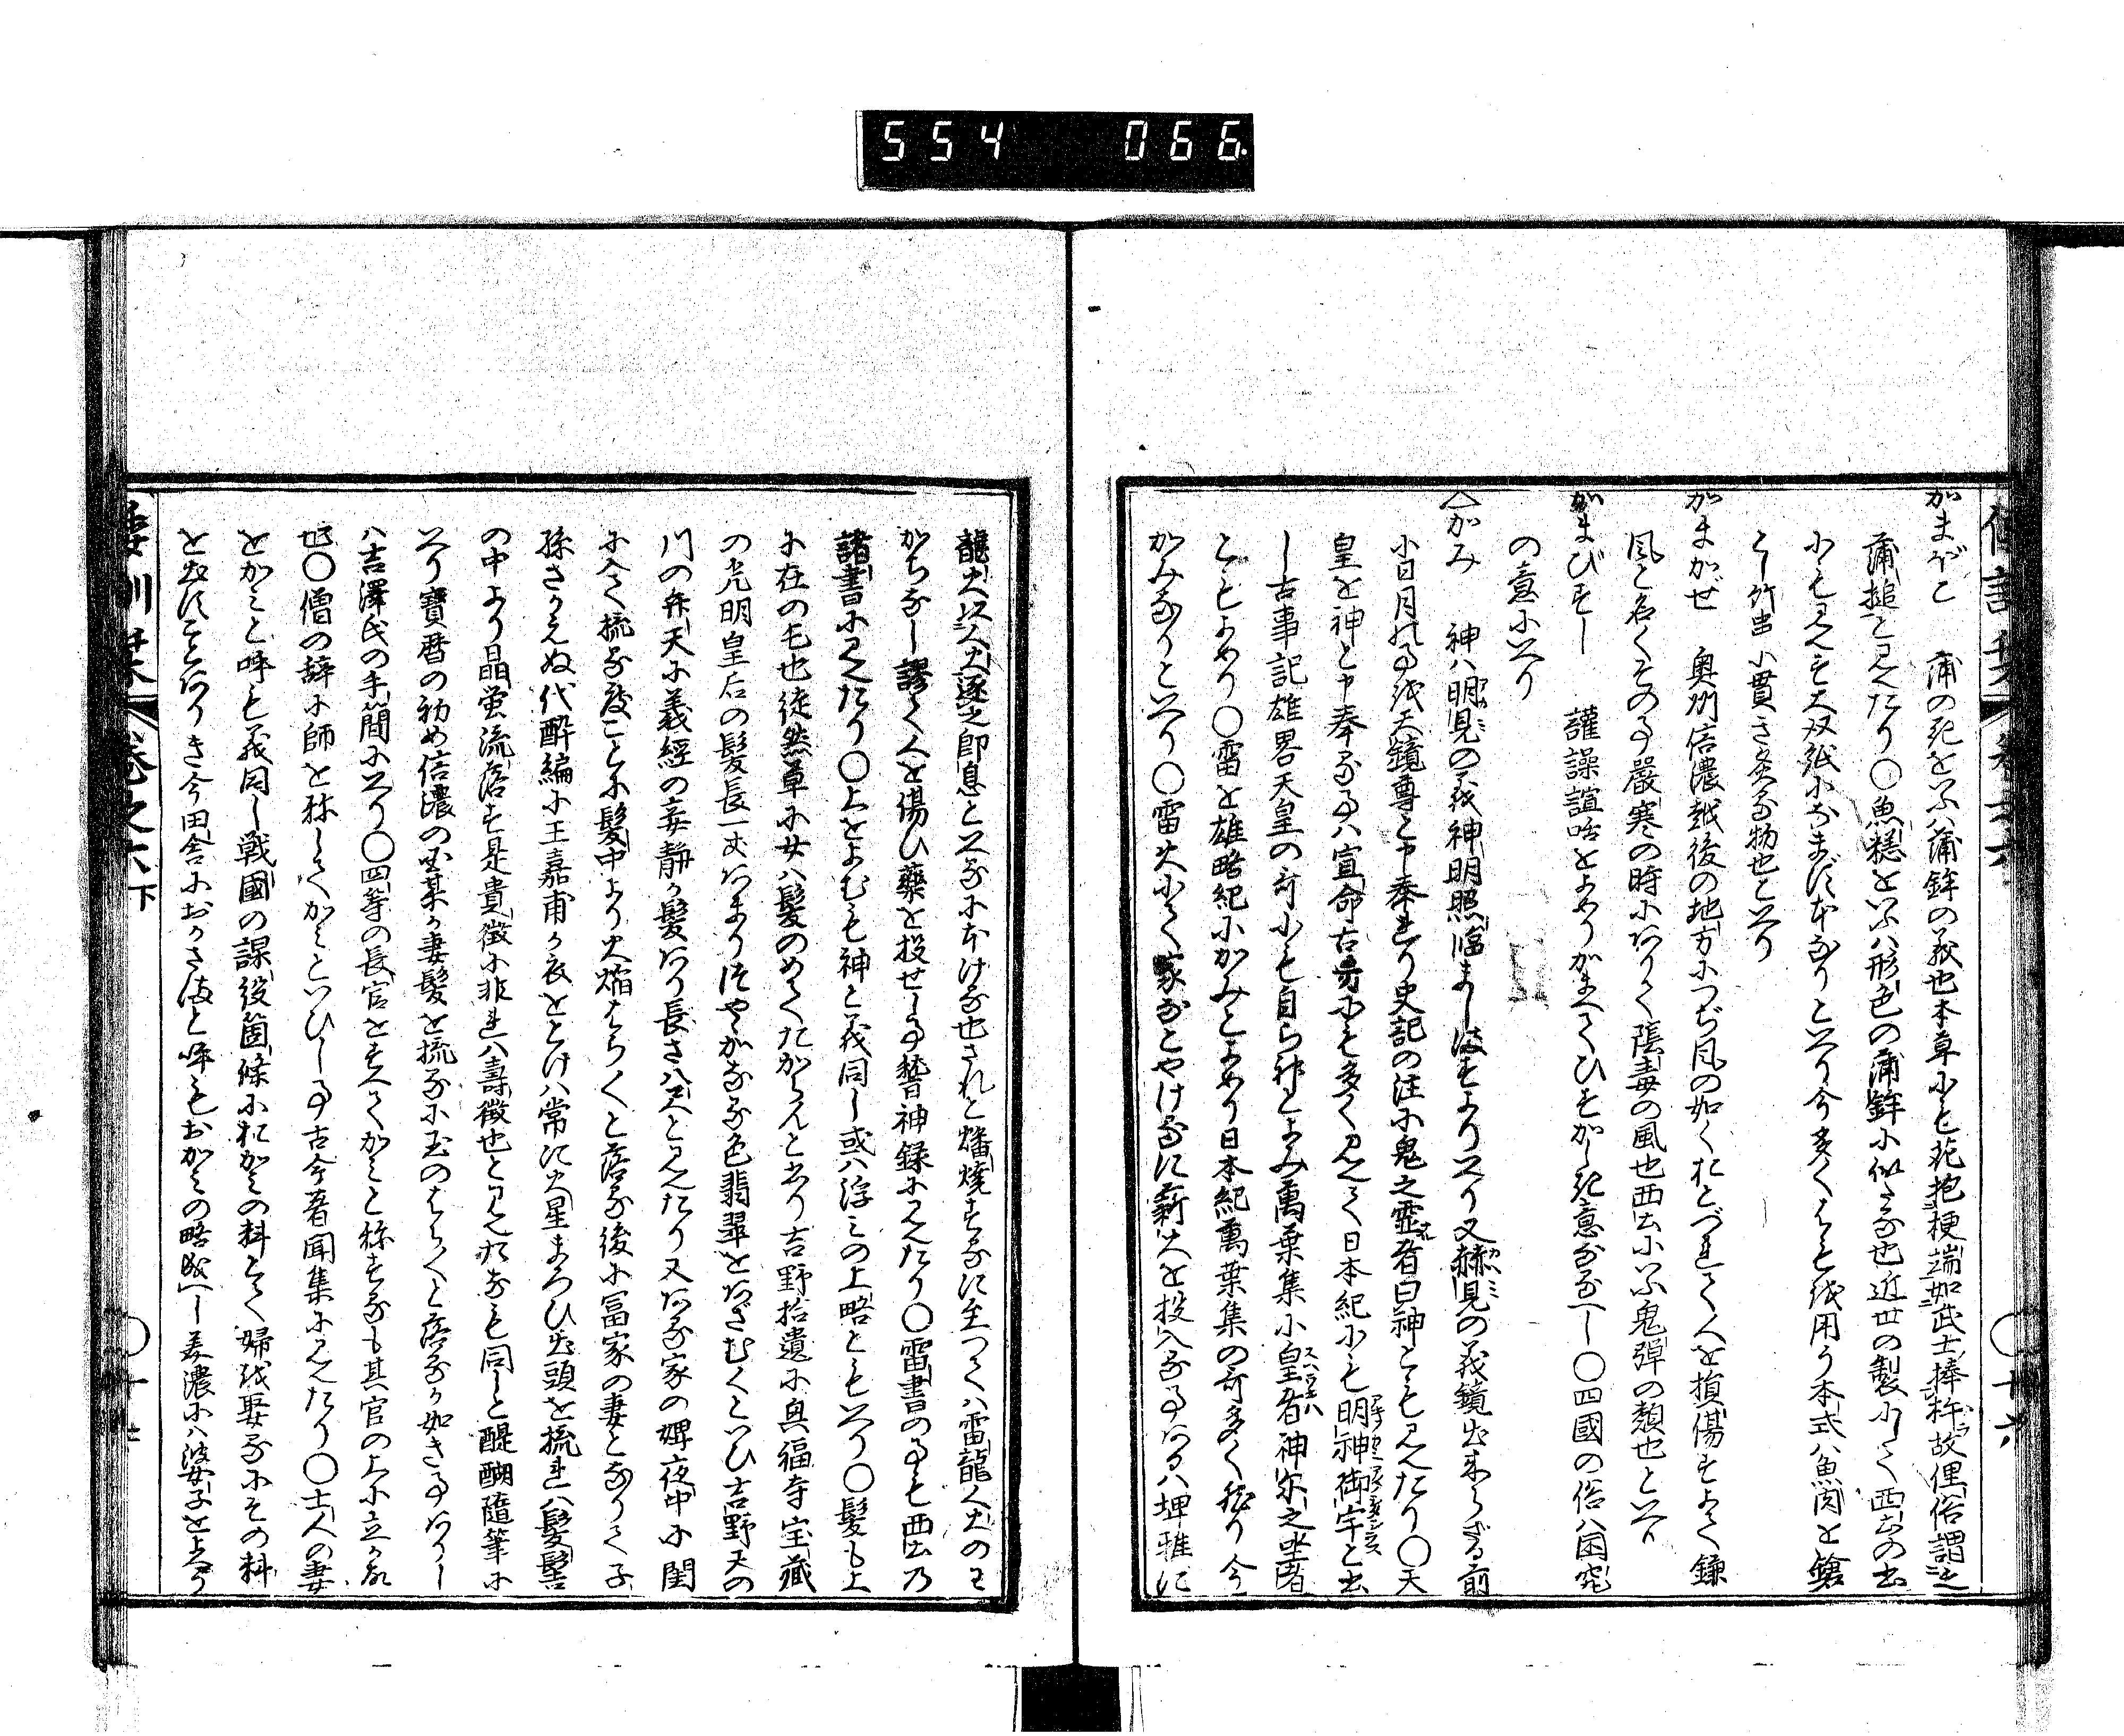 554 066
がまぼこ 蒲の花をいふ蒲鉾の義也本草にも花抱梗端如武士捧杵故俚俗謂之
蒲槌と見えたり〇魚糕をいふハ形色の蒲鉾に似たる也近世の製にして西土の書
にも見えす大双紙になまずなりといへり今多くはも を用う本式ハ魚肉を鎗
こし竹串に貫き炙る物也といへり
がまかぜ 奥州信濃越後の地方につぢ風の如くおとづれて人を損傷すよて鎌
風と名くその事厳寒の時にありて陰毒の風也西土にいふ鬼弾の類也といへり
がまびすし 讙譟諠啥をよめりがまへてひすがしき意なるべし〇四國の俗ハ困窮
の意にいへり
△かみ 神ハ明見の義神明照臨ましますよりいへり又赫見の義鏡出来らざる前
に日月の事を天鏡尊と申奉れり史記の注に鬼之霊者曰神とも見えたり〇天
皇を神と申奉る事ハ宣命古哥にも多く見えて日本紀にも明神御宇と書
し古事記雄畧天皇の哥にも自ら神とよみ萬葉集に皇者神尓之坐者
ともよめり〇雷を雄略紀にかみとよめり日本紀萬葉集の哥多く然り今
かみなりといへり〇雷火にて家などやけるに薪火を投入る事あるハ埤雅に
龍火 以人火逐之即息といへるに本ける也されと燔焼するに至つてハ雷龍人火のわ
かちなし謬て人を傷ひ藥を投せし事 神録に見えたり〇雷書の事も西土乃
諸書に見えたり〇上をよむも神と義同し或ハ浮ミの上略ともいへり〇髪も上
に在の毛也徒然草に女ハ髪のめてたからんと あり吉野拾遺に興福寺宝蔵
の光明皇后の髪長一丈あまりつやゝかなる色翡翠をあざむくといひ吉野天の
川の弁天に義經の妾静か髪あり長さ八尺と見えたり又ある家の婢夜中に閨
に入て梳る度ことに髪中より火焔はら〱と落る後に冨家の妻となりて子
孫さかえぬ代酔編に王嘉甫か衣をとけハ常に火星まろひ出頭を梳れハ髪髻
の中より晶蛍流落す是貴徴に非れハ壽徴也と見えたるも同しと醍醐随筆に
いへり寶暦の初め信濃の 某か妻髪を梳るに玉のはら〱と落るか如き事ありし
ハ吉澤氏の手簡にいへり〇四等の長官をすへてかミと称するも其官の上に立か故
也〇僧の辞に師を称してかミといひし事古今著聞集に見えたり〇士人の妻
をかミと呼も義同し戦國の課役箇條におかミの料とて婦を娶るにその料
を出すことありき今田舎におかさまと呼もおかミの略成へし美濃にハ波女子をよへり
倭訓栞 卷之六下
〇十六